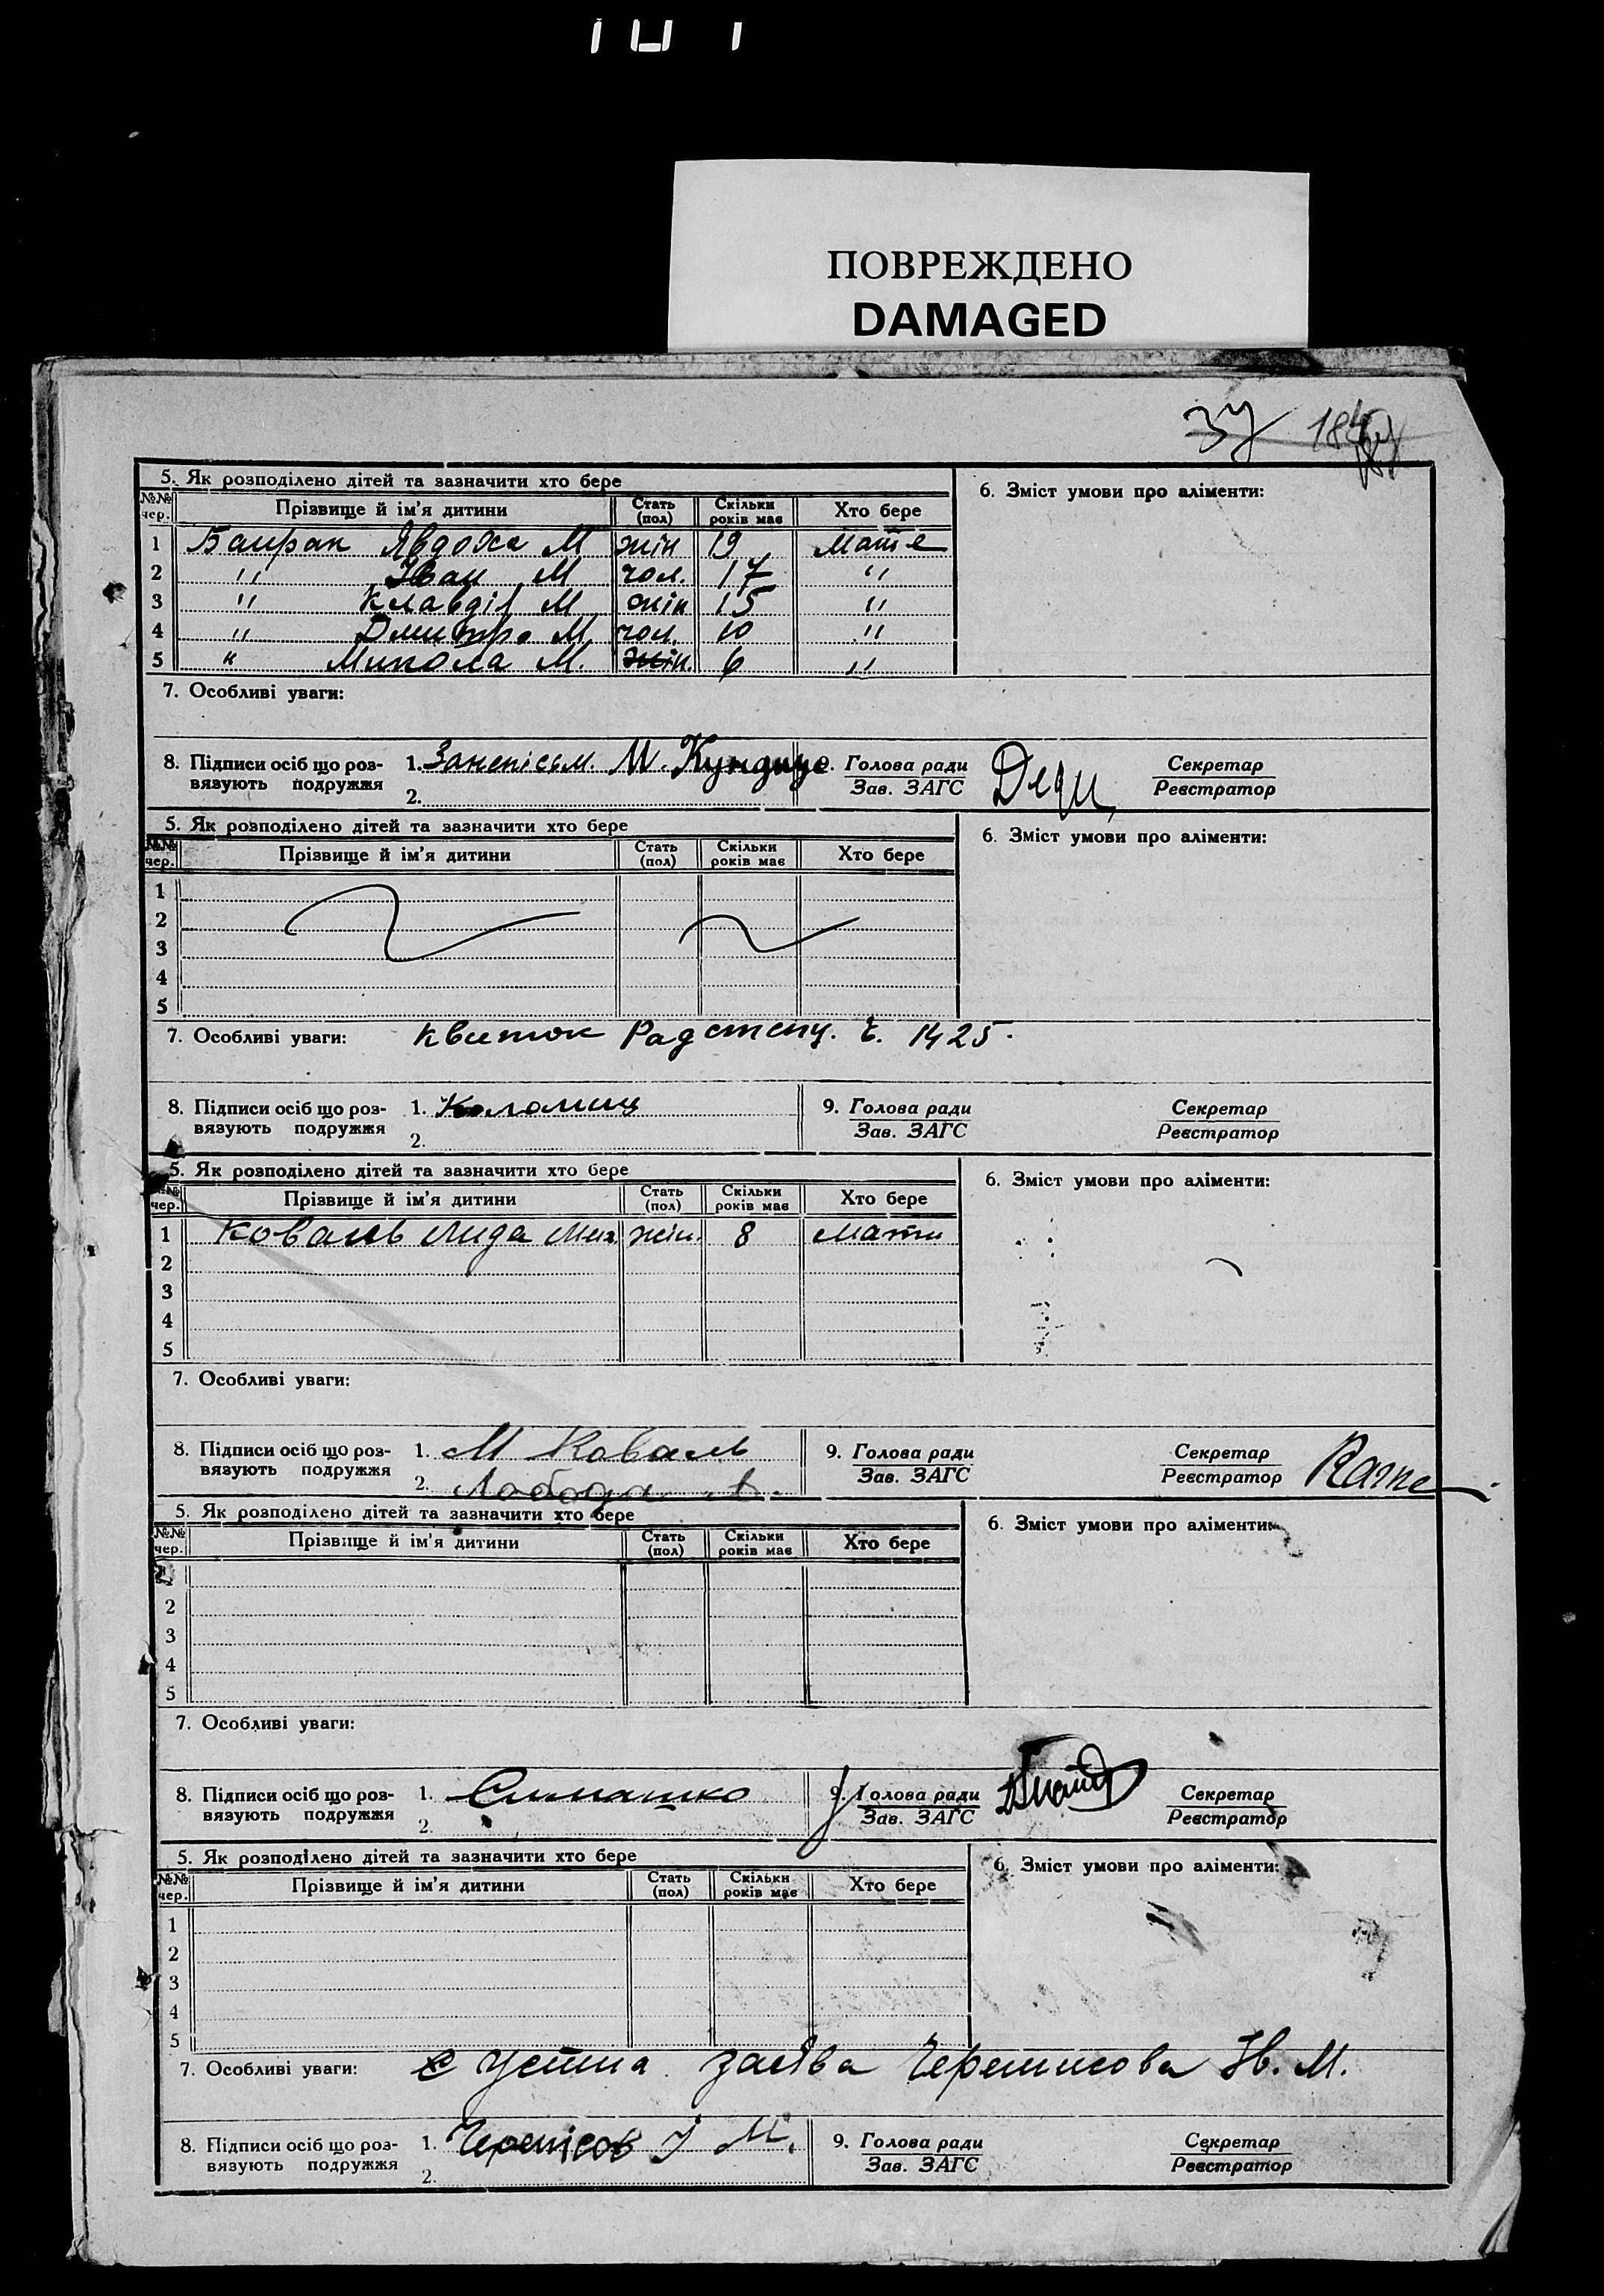 ПОВРЕЖДЕНО
DAMAGED
37 184
5. Як розподілено дітей та зазначити хто бере
6. Зміст умови про аліменти:
№№ чер. Прізвище й ім'я дитини Стать (пол) Скільки років має Хто бере
1 Явдоха М жін 19
2 " Іван М чол. 17 "
3 " Клавдія М жін 15 "
4 " Дмитро М. чол. 10 "
5 " Микола М. жін. 6 "
7. Особливі уваги:
8. Підписи осіб що роз- 1. М. Голова ради Секретар
вязують подружжя 2. Зав. ЗАГС Реєстратор
5. Як розподілено дітей та зазначити хто бере
6. Зміст умови про аліменти:
№№ чер. Прізвище й ім'я дитини Стать (пол) Скільки років має Хто бере
1
2
3
4
5
7. Особливі уваги: квиток Радстепу. ч. 1425.
8. Підписи осіб що роз- 1. Коломиц 9. Голова ради Секретар
вязують подружжя 2. Зав. ЗАГС Реєстратор
5. Як розподілено дітей та зазначити хто бере
6. Зміст умови про аліменти:
№№ чер. Прізвище й ім'я дитини Стать (пол) Скільки років має Хто бере
1 Коваль Лида Мих. жін. 8 Мати
2
3
4
5
7. Особливі уваги:
8. Підписи осіб що роз- 1. М Коваль 9. Голова ради Секретар
вязують подружжя 2. Лобода Зав. ЗАГС Реєстратор
5. Як розподілено дітей та зазначити хто бере
6. Зміст умови про аліменти:
№№ чер. Прізвище й ім'я дитини Стать (пол) Скільки років має Хто бере
2
3
4
5
7. Особливі уваги:
8. Підписи осіб що роз- 1. Симашко 9. Голова ради Секретар
вязують подружжя 2. Зав. ЗАГС Реєстратор
5. Як розподілено дітей та зазначити хто бере
6. Зміст умови про аліменти:
№№ чер. Прізвище й ім'я дитини Стать (пол) Скільки років має Хто бере
1
2
3
4
5
7. Особливі уваги: є устна заява Черемисова Ів. М.
8. Підписи осіб що роз- 1. Черемісов І М. 9. Голова ради Секретар
вязують подружжя 2. Зав. ЗАГС Реєстратор